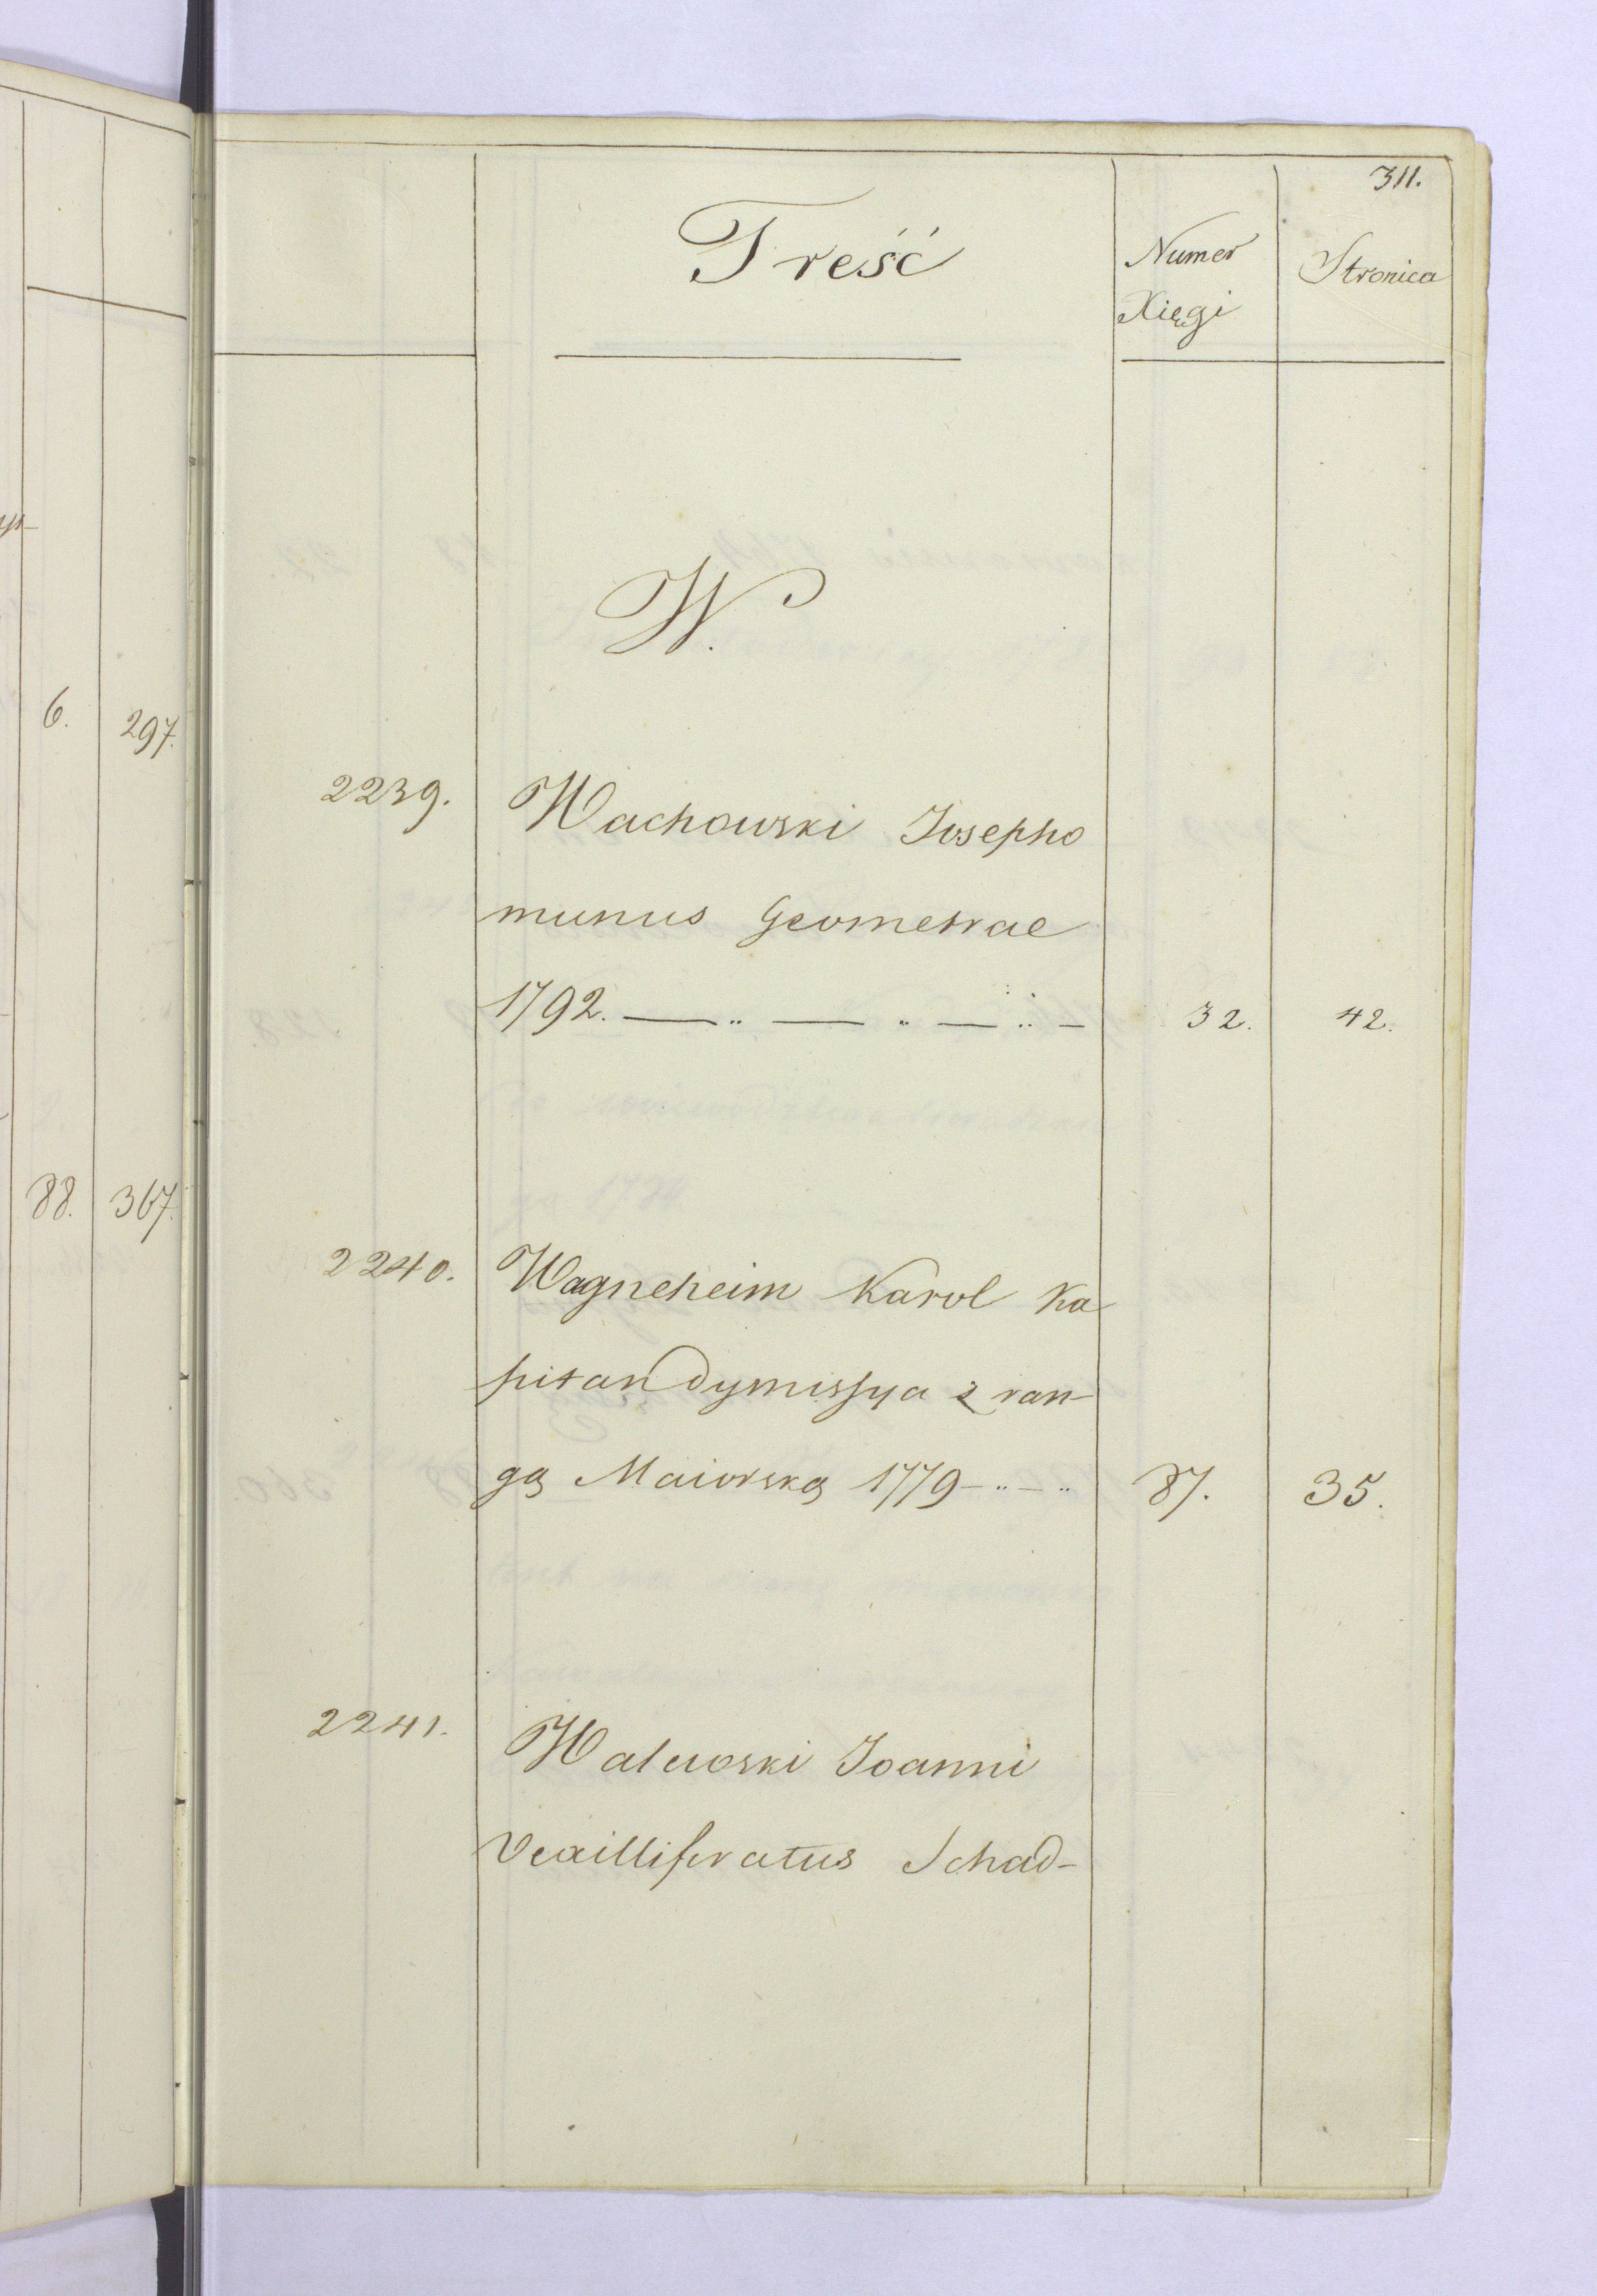 311.
Treść
Numer
Xięgi
Stronica
W.
6. 297.
2239. Wachowski Josepho
munus Geometrae
1792. — .. — .. — .. — 32. 42.
88. 367.
2240. Wagneheim Karol Ka
pitan dymissya z ran-
gą Maiorską 1779 - .. - .. 87. 35.
2241. Walewski Joanni
Vexilliferatus Schad-